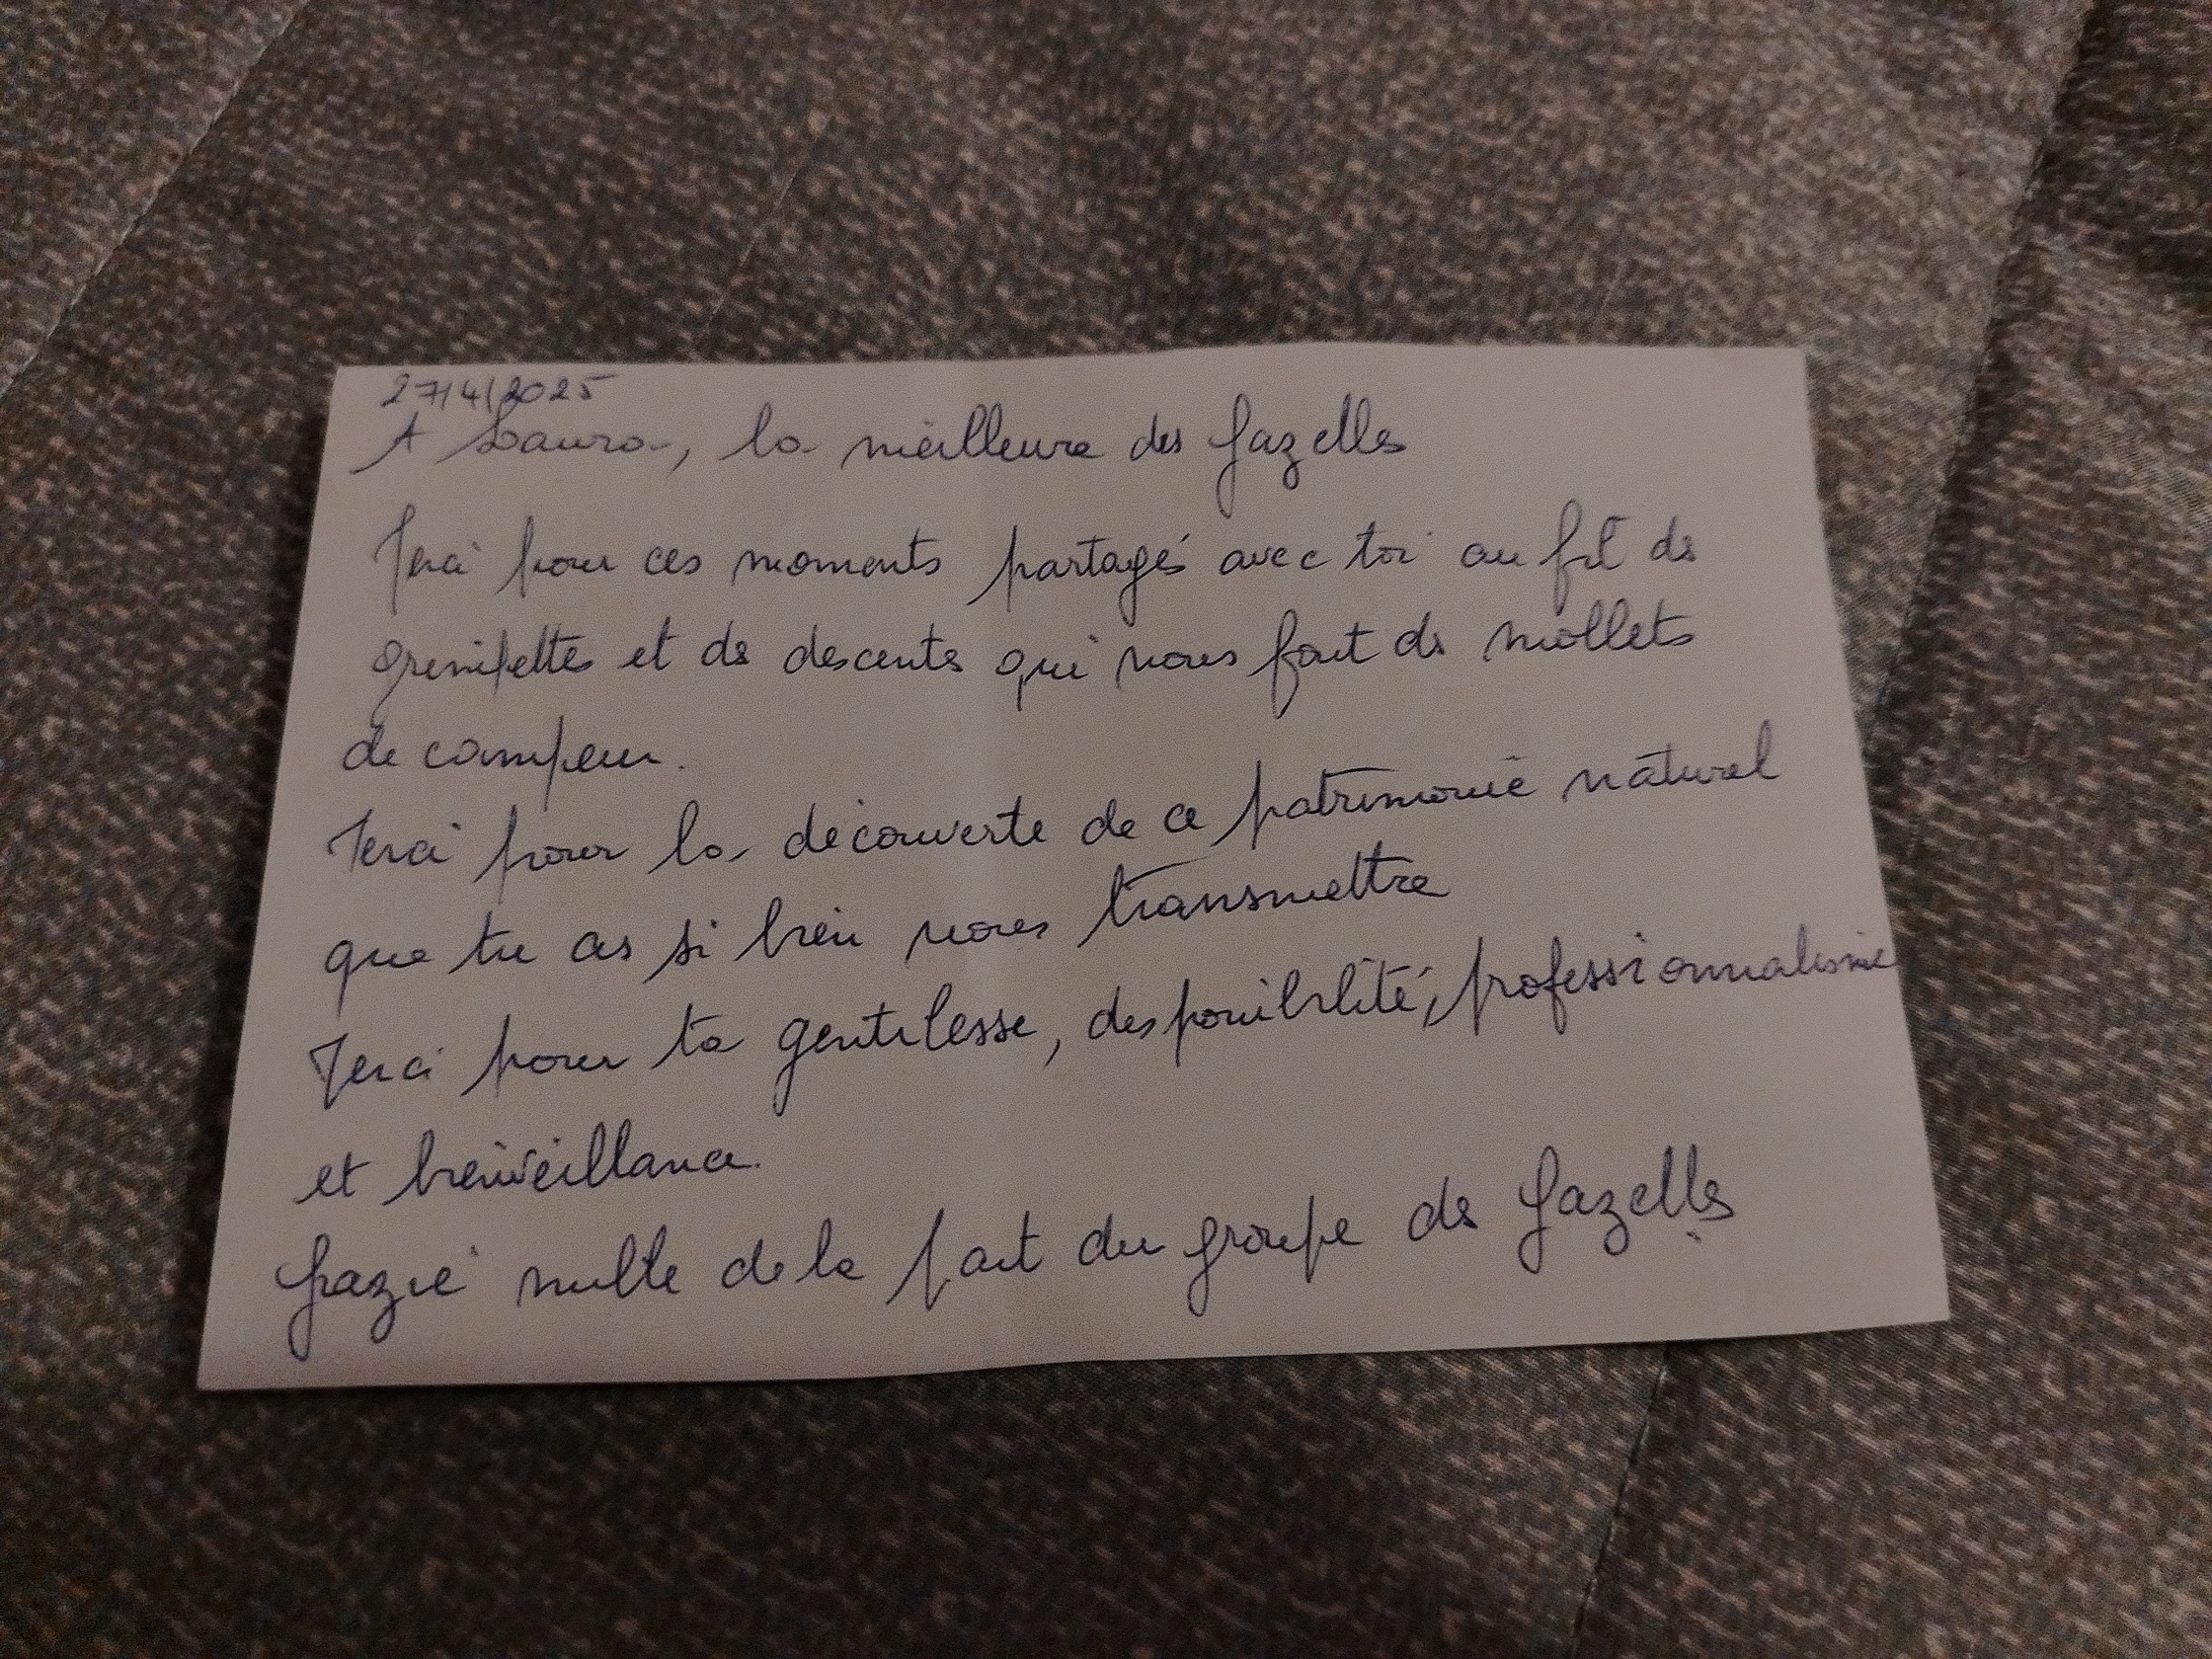 27/4/2025
A Laura, la meilleure des Gazelles
Merci pour ces moments partagés avec toi au fil de
grimpettes et de descentes qui nous font de mollets
de campeur.
Merci pour la découverte de ce patrimoine naturel
que tu as si bien nous transmettre
Merci pour ta gentilesse, disponibilité, professionnalisme
et bienveillance.
Grazie mille de la part du groupe de Gazelles